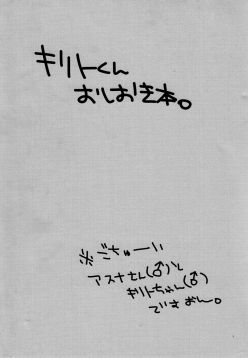 キリトくん
おしおき本。
※ごちゅーい
アスナさん(♂)と
キリトちゃん(♂)
でさぁん。